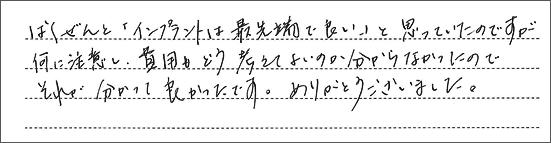 ばくぜんと「インプラントは最先端で良い」と思っていたのですが
何に注意し、費用もどう考えてよいのか分からなかったので
それが分かって良かったです。ありがとうございました。